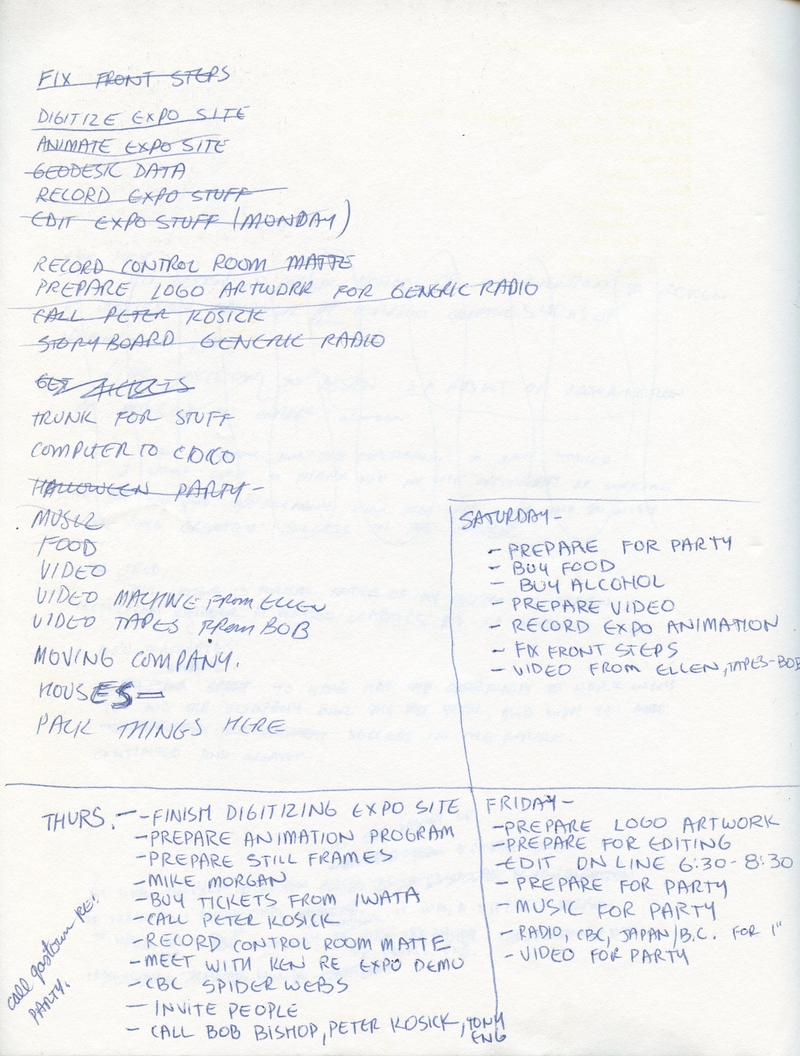 FIX FRONT STEPS
DIGITIZE EXPO SITE
ANIMATE EXPO SITE
GEODESIC DATA
RECORD EXPO STUFF
EDIT EXPO STUFF (MONDAY)
RECORD CONTROL ROOM MATTE
PREPARE LOGO ARTWORK FOR GENERIC RADIO
CALL PETER KOSICK
STORYBOARD GENERIC RADIO
GET
TRUNK FOR STUFF
COMPUTER TO
HALLOWEEN PARTY-
MUSIC
FOOD
VIDEO
VIDEO MACHINE FROM ELLEN
VIDEO TAPES FROM BOB
MOVING COMPANY.
HOUSES-
PACK THINGS HERE
SATURDAY-
- PREPARE FOR PARTY
- BUY FOOD
- BUY ALCOHOL
- PREPARE VIDEO
- RECORD EXPO ANIMATION
- FIX FRONT STEPS
- VIDEO FROM ELLEN, TAPES-BOB
THURS. - - FINISH DIGITIZING EXPO SITE
- PREPARE ANIMATION PROGRAM
- PREPARE STILL FRAMES
- MIKE MORGAN
- BUY TICKETS FROM IWATA
- CALL PETER KOSICK
- RECORD CONTROL ROOM MATTE
- MEET WITH KEN RE EXPO DEMO
- CBC SPIDER WEBS
- INVITE PEOPLE
- CALL BOB BISHOP, PETER KOSICK, TONY
ENG
call gastown RE:
PARTY.
FRIDAY-
- PREPARE LOGO ARTWORK
- PREPARE FOR EDITING
- EDIT ON LINE 6:30-8:30
- PREPARE FOR PARTY
- MUSIC FOR PARTY
- RADIO, CBC, JAPAN/B.C. FOR 1"
- VIDEO FOR PARTY